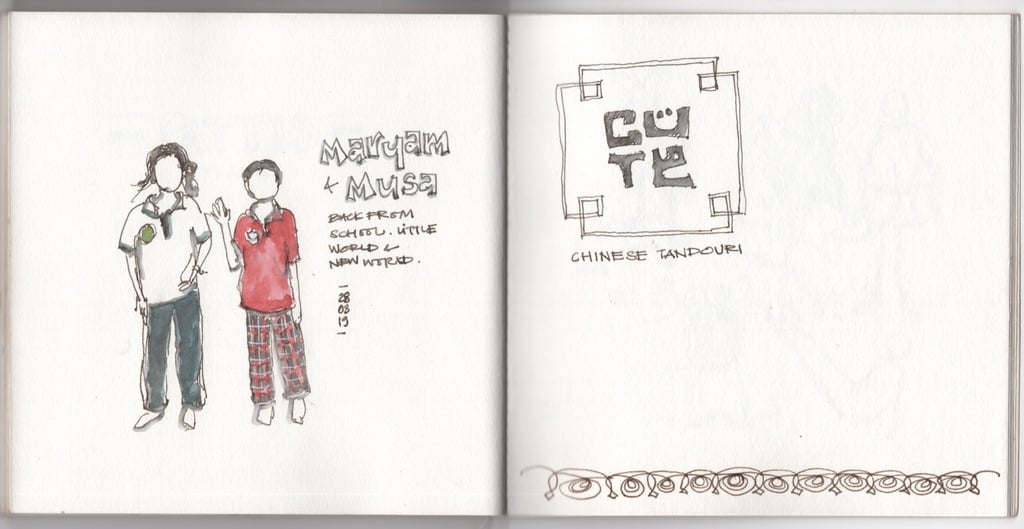 Maryam
& Musa
BACK FROM
SCHOOL. LITTLE
WORLD &
NEW WORLD.
28
03
19
CÜ
TE
CHINESE TANDOURI